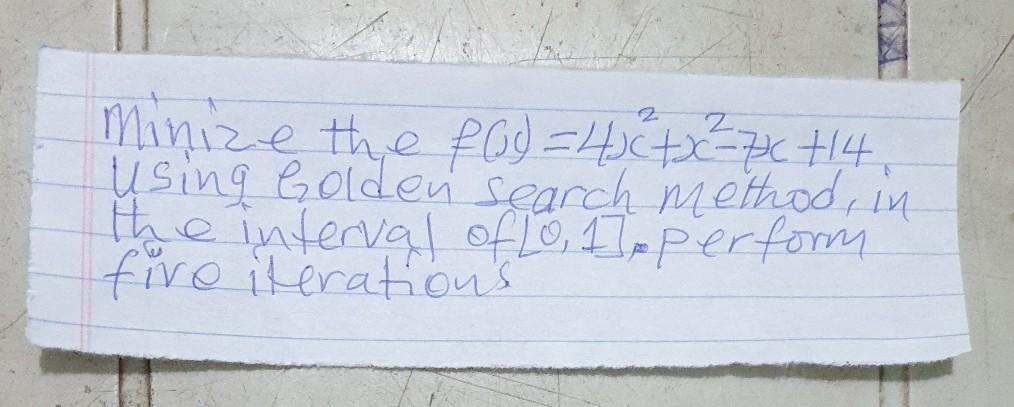 Minize the f(x) = 4x²+x²-7x +14.
Using Golden search method, in
the interval of [0,1], perform
five iterations